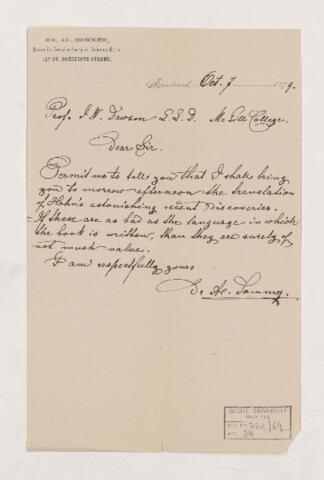 Montreal, Oct. 7 1879.
Prof. J. W. Dawson L.L.D. Mc Gill College.
Dear Sir.
Permit me to tell you that I shall bring
you to morrow afternoon the translation
of Hahn's astonishing recent Discoveries.
If these are as bad as the language in which
the book is written, than they are surely of
not much value.
I am respectfully yours
McGILL UNIVERSITY
ARCHIVES
2211/69
34